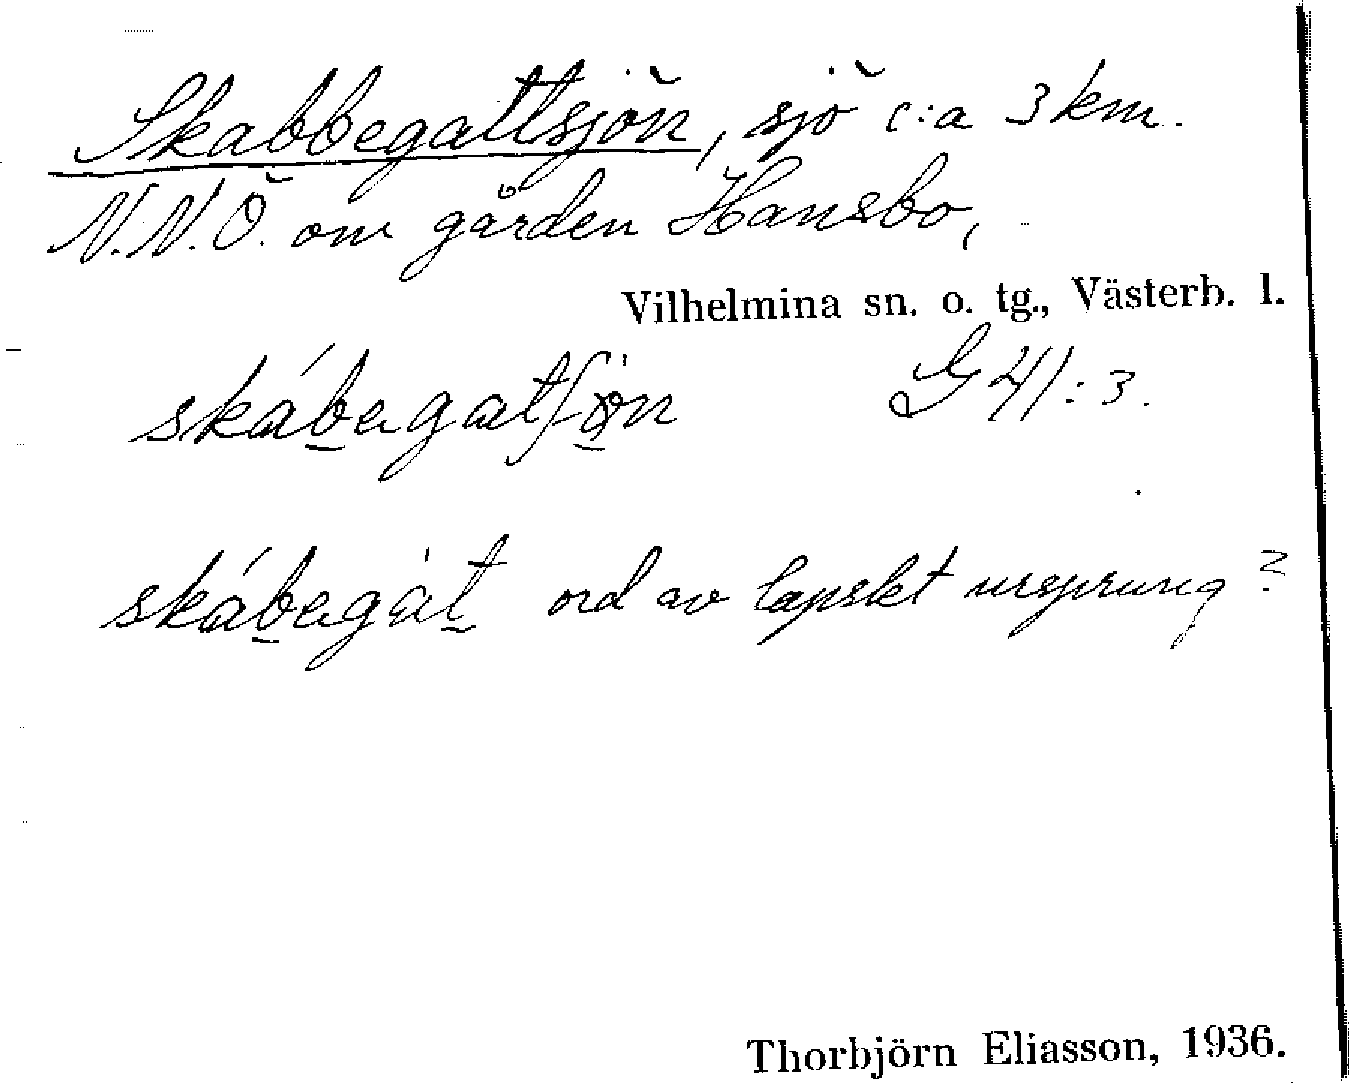 Skabbegattsjön, sjö c:a 3 km.
N.N.Ö. om gården Hansbo,
Vilhelmina sn. o. tg., Västerb. l.
skábegatʃø̀n G 41:3.
skábegàt ord av lapskt ursprung?
Thorbjörn Eliasson, 1936.